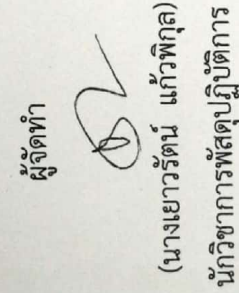 ผู้จัดทำ
(นางเยาวรัตน์ แก้วพิกุล)
นักวิชาการพัสดุปฏิบัติการ